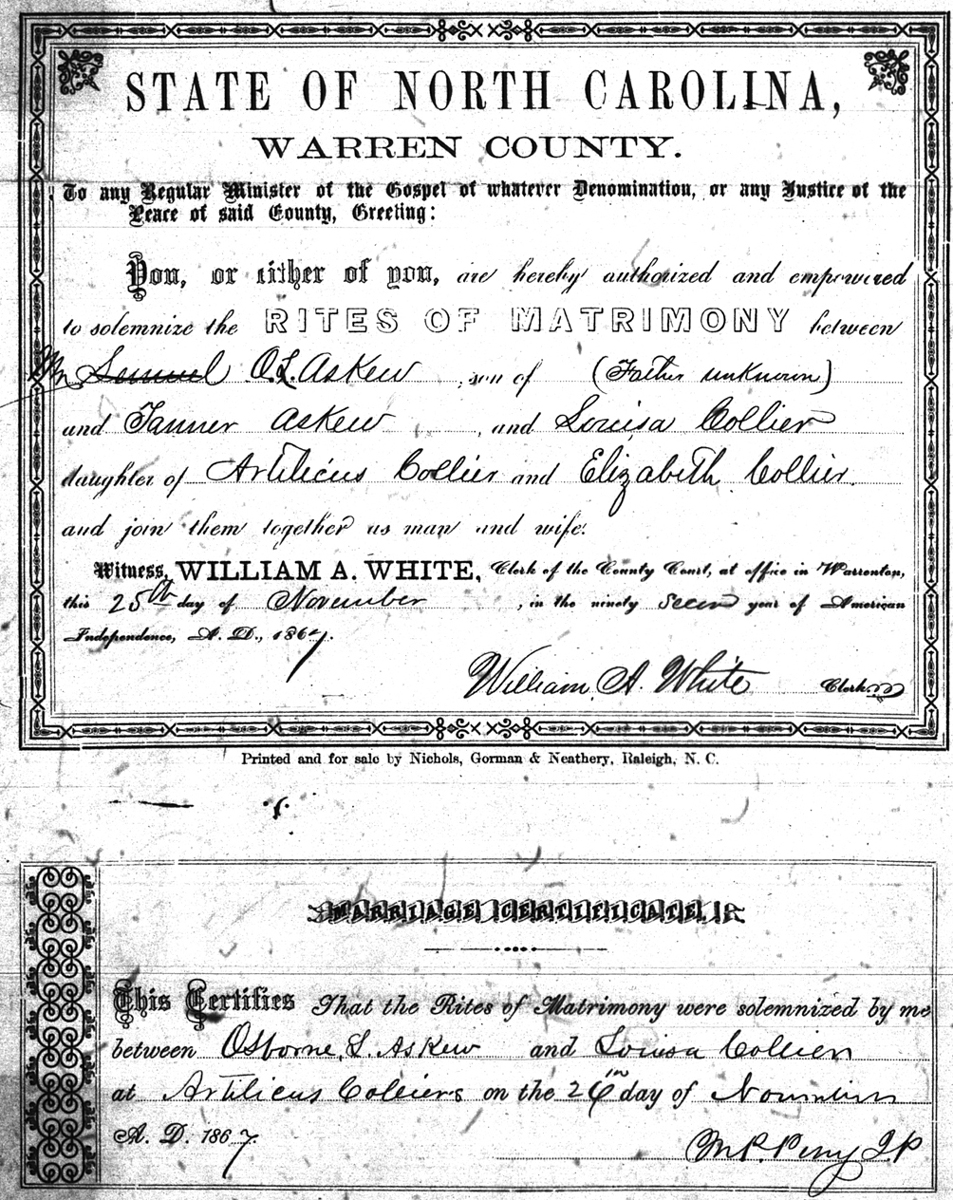 STATE OF NORTH CAROLINA,
WARREN COUNTY.
To any Regular Minister of the Gospel of whatever Denomination, or any Justice of the
Peace of said County, Greeting:
You, or either of you, are hereby authorized and empowered
to solemnize the RITES OF MATRIMONY between
Samuel O. L. Askew, son of (Father unknown)
and Tanner Askew, and Louisa Collier
daughter of Artilicus Collier and Elizabeth Collier.
and join them together as man and wife.
Witness, WILLIAM A. WHITE, Clerk of the County Court, at office in Warrenton,
this 25th day of November, in the ninety year of American
Independence, A. D., 1867.
William A. White Clerk
Printed and for sale by Nichols, Gorman & Neathery, Raleigh, N. C.
MARRIAGE CERTIFICATE.
This Certifies That the Rites of Matrimony were solemnized by me
between Osborne, L. Askew and Louisa Collier
at Artilicus Colliers on the 26th day of November
A. D. 1867.
M. P. Perry J P